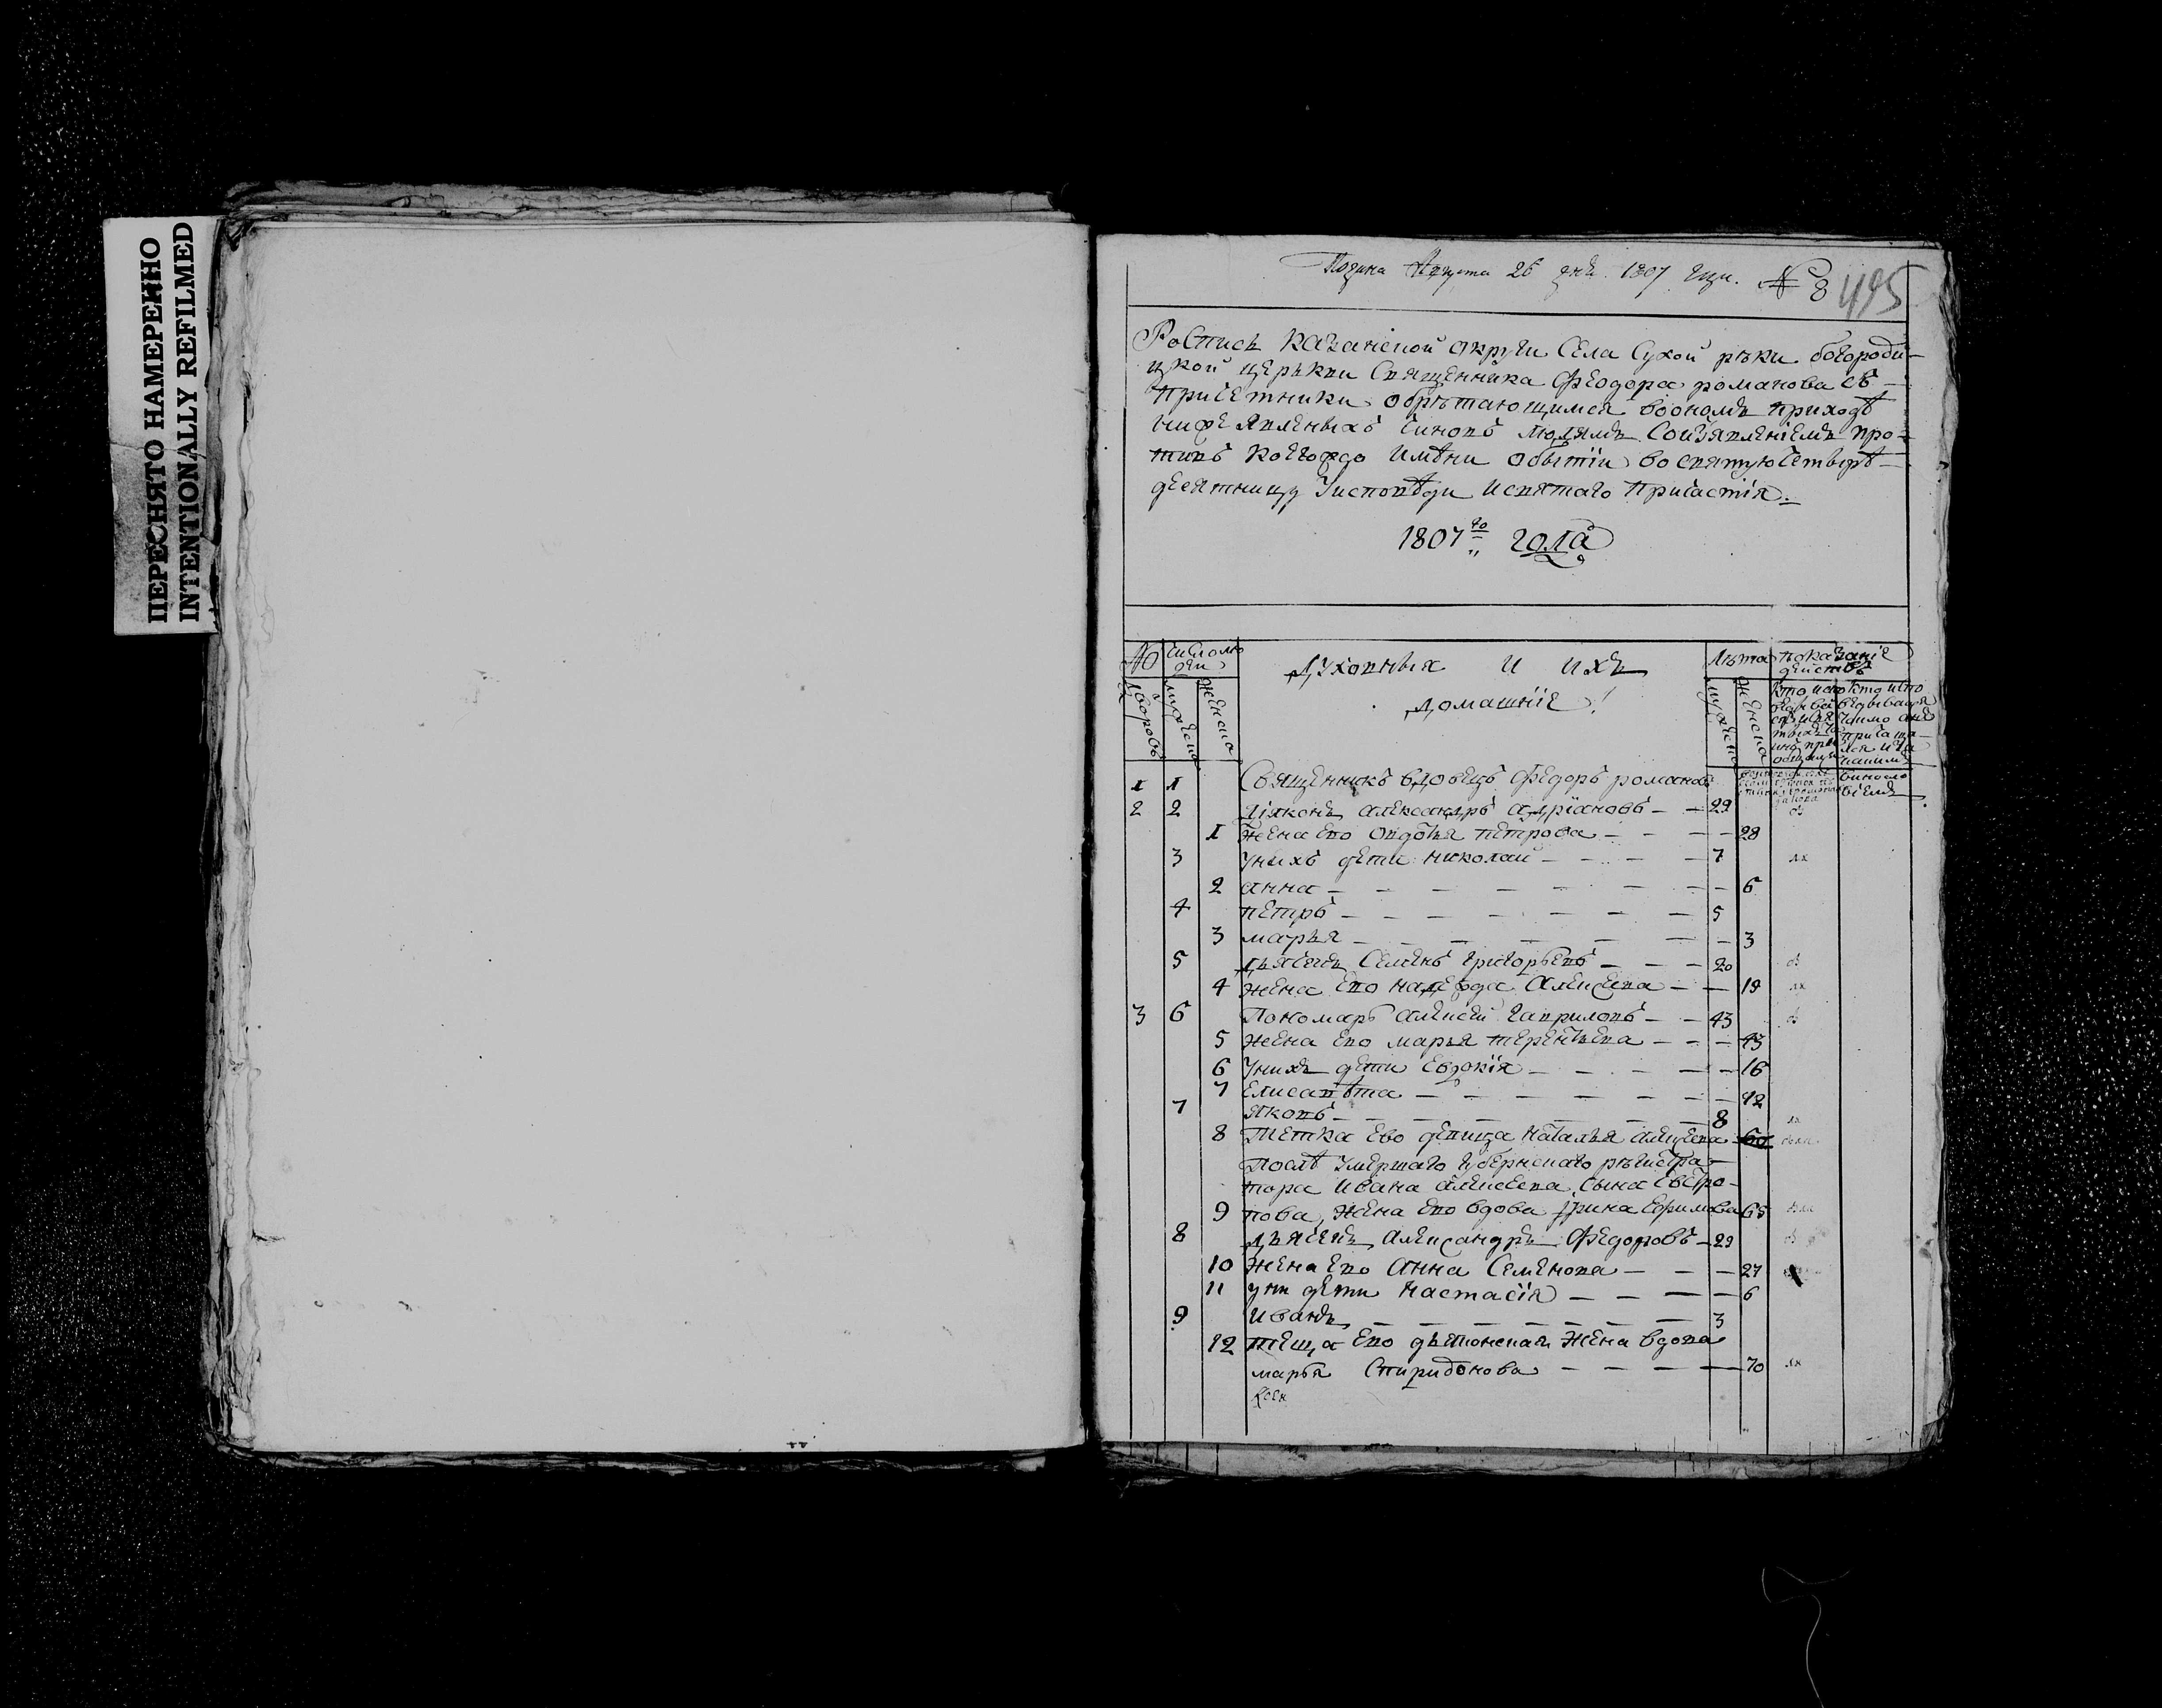 ПЕРЕСНЯТО НАМЕРЕННО
INTENTIONALLY REFILMED
Подана Августа 26 дня 1807 года. № 8 495
Роспись казанской округи Села Сухой рѣки богороди-
цкой церькви Священника Феодора романова съ
причетники обрѣтающимся воономъ приходѣ
нижеявленыхъ чиновъ людямъ Соизъявленіемъ про-
тивъ коегождо имѣни обытіи восвятую четыре-
десятницу Уисповѣди исвятаго причастія.
1807го года
№ число лю
деи
Духовныя и ихъ
домашніе
Лѣта показаніе
дѣйствъ
дворовъ мужеска женска
мужеска женска
1 1 Священникъ вдовецъ Федоръ романовъ
2 2 Дїяконъ александръ адріановъ 29
1 Жена Ево Овдотья петрова 28
3 Унихъ дети николаи 7
2 анна 6
4 петръ 5
3 марья 3
5 дьячекъ Семенъ григорьевъ 20
4 жена Ево надежда Алексеева 19
3 6 Пономарь алексеи гавриловъ 43
5 жена Ево марья терентьева 43
6 Унихъ дети Евдокія 16
7 Елисавѣта 12
7 яковъ 8
8 Тетка Ево девица наталья алексеева
Послѣ Умершаго губернскаго регистра-
тора ивана алексеева сына Евстро-
9 пова, жена Ево вдова Ирина Ефимова 65
8 дьячекъ Александръ Федоровъ 29
10 жена Ево анна Семенова 27
11 уни дети настасія 6
9 иванъ 3
12 теща Ево дьяконская Жена вдова
марья Спиридонова 70